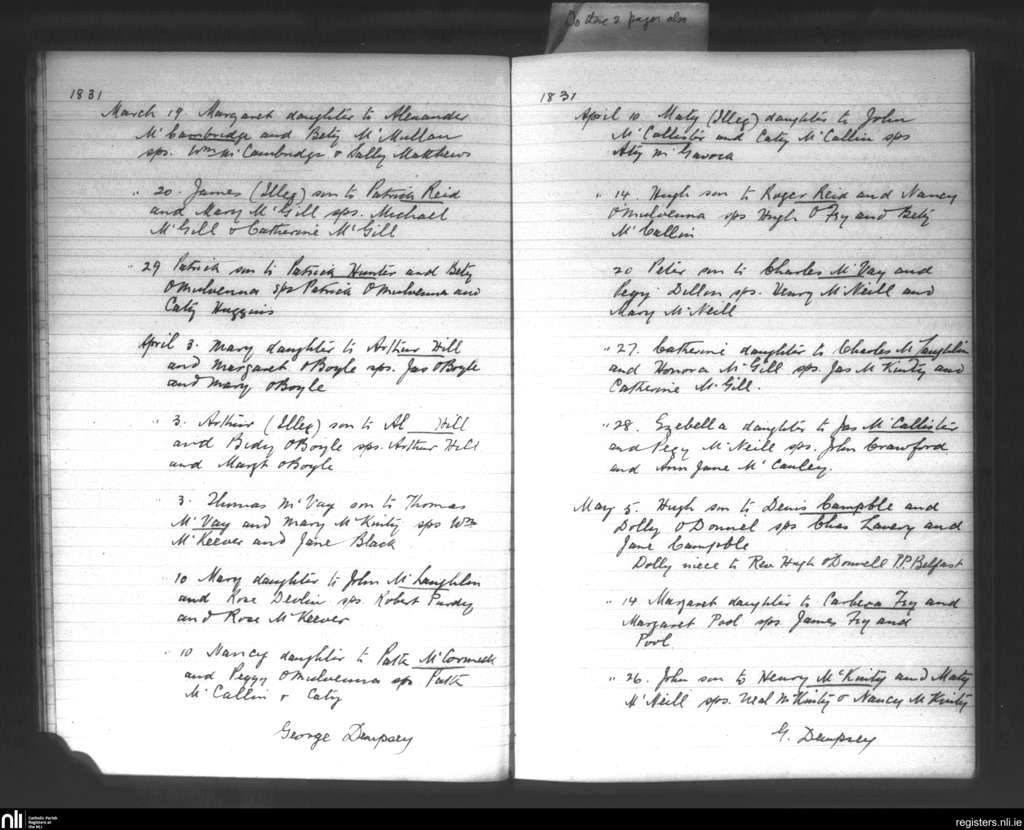 Do these 2 pages also
1831
March 19. Margaret daughter to Alexander
McCambridge and Bety McMullan
sps. Wm McCambridge & Sally Matthews
" 20. James (Illeg) son to Patrick Reid
and Mary McGill sps. Michael
McGill & Catherine McGill
" 29 Patrick son to Patrick Hunter and Bety
OMulvenna sps Patrick OMulvenna and
Caty Huggins
April 3. Mary daughter to Arthur Hill
and Margaret OBoyle sps. Jas OBoyle
and Mary OBoyle
" 3. Arthur (Illeg) son to Al___ Hill
and Bidy OBoyle sps. Arthur Hill
and Margt OBoyle
" 3. Thomas McVay son to Thomas
McVay and Mary McKinty sps Wm
McKeever and Jane Black
10 Mary daughter to John McLaughlon
and Rose Devlin sps. Robert Purdy
and Rose McKeever
" 10 Nancy daughter to Patk McCormick
and Peggy OMulvenna sps Patk
McCallin & Caty
George Dempsey
1831
April 10. Maty (Illeg) daughter to John
McCallister and Caty McCallin sps
Aty McGavock
" 14. Hugh son to Roger Reid and Nancy
OMulvenna sps Hugh OFry and Bety
McCallin
20 Peter son to Charles McVay and
Pegy Dillon sps. Henry McNeill and
Mary McNeill
" 27. Catherine daughter to Charles McLaughlin
and Honora McGill sps. Jas McKinty and
Catherine McGill.
" 28. Ezebella daughter to Jas McCallister
and Pegy McNeill sps. John Crawford
and Ann Jane McCauley.
May 5. Hugh son to Denis Campble and
Dolly ODonnel sps Chas Lavery and
Jane Campble
Dolly niece to Rev Hugh ODonnell P.P. Belfast
" 14 Margaret daughter to Fry and
Margaret Pool sps James Fry and
Pool
" 26. John son to Henry McKinty and Maty
McNeill sps. Neal McKinty & Nancy McKinty
G. Dempsey
nli
Catholic Parish
Registers at
the NLI
registers.nli.ie